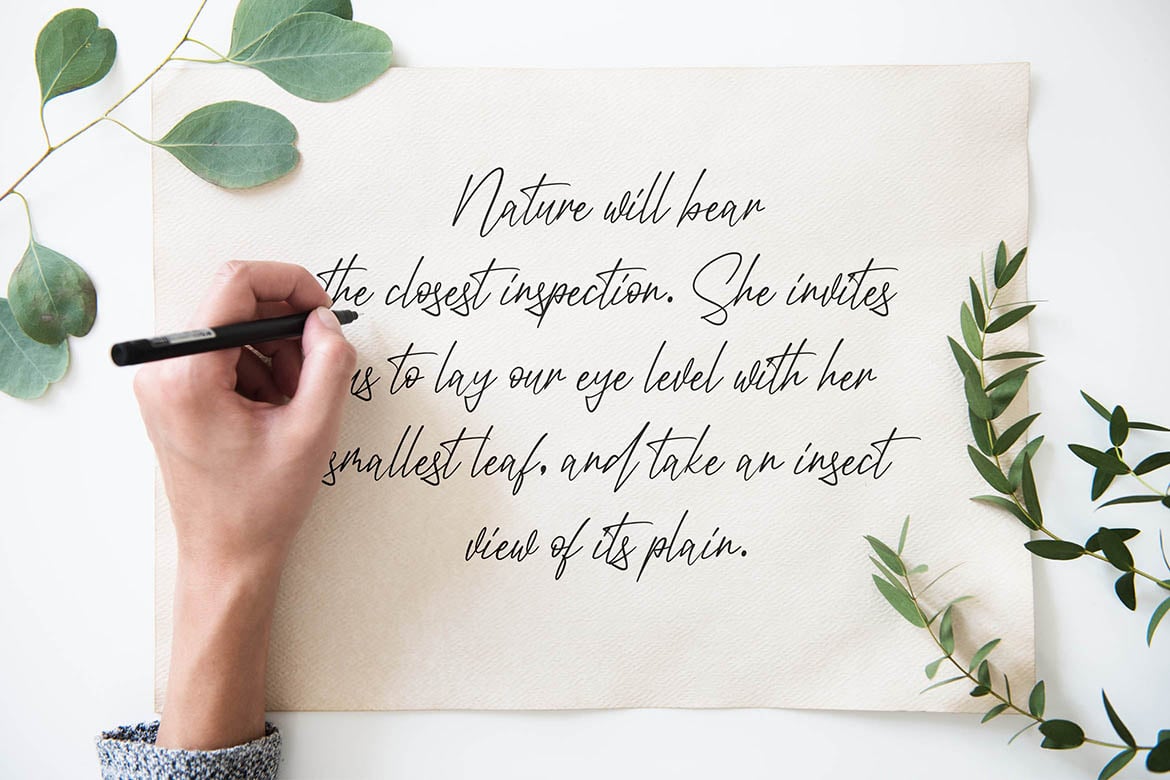 Nature will bear
the closest inspection. She invites
us to lay our eye level with her
smallest leaf, and take an insect
view of its plain.